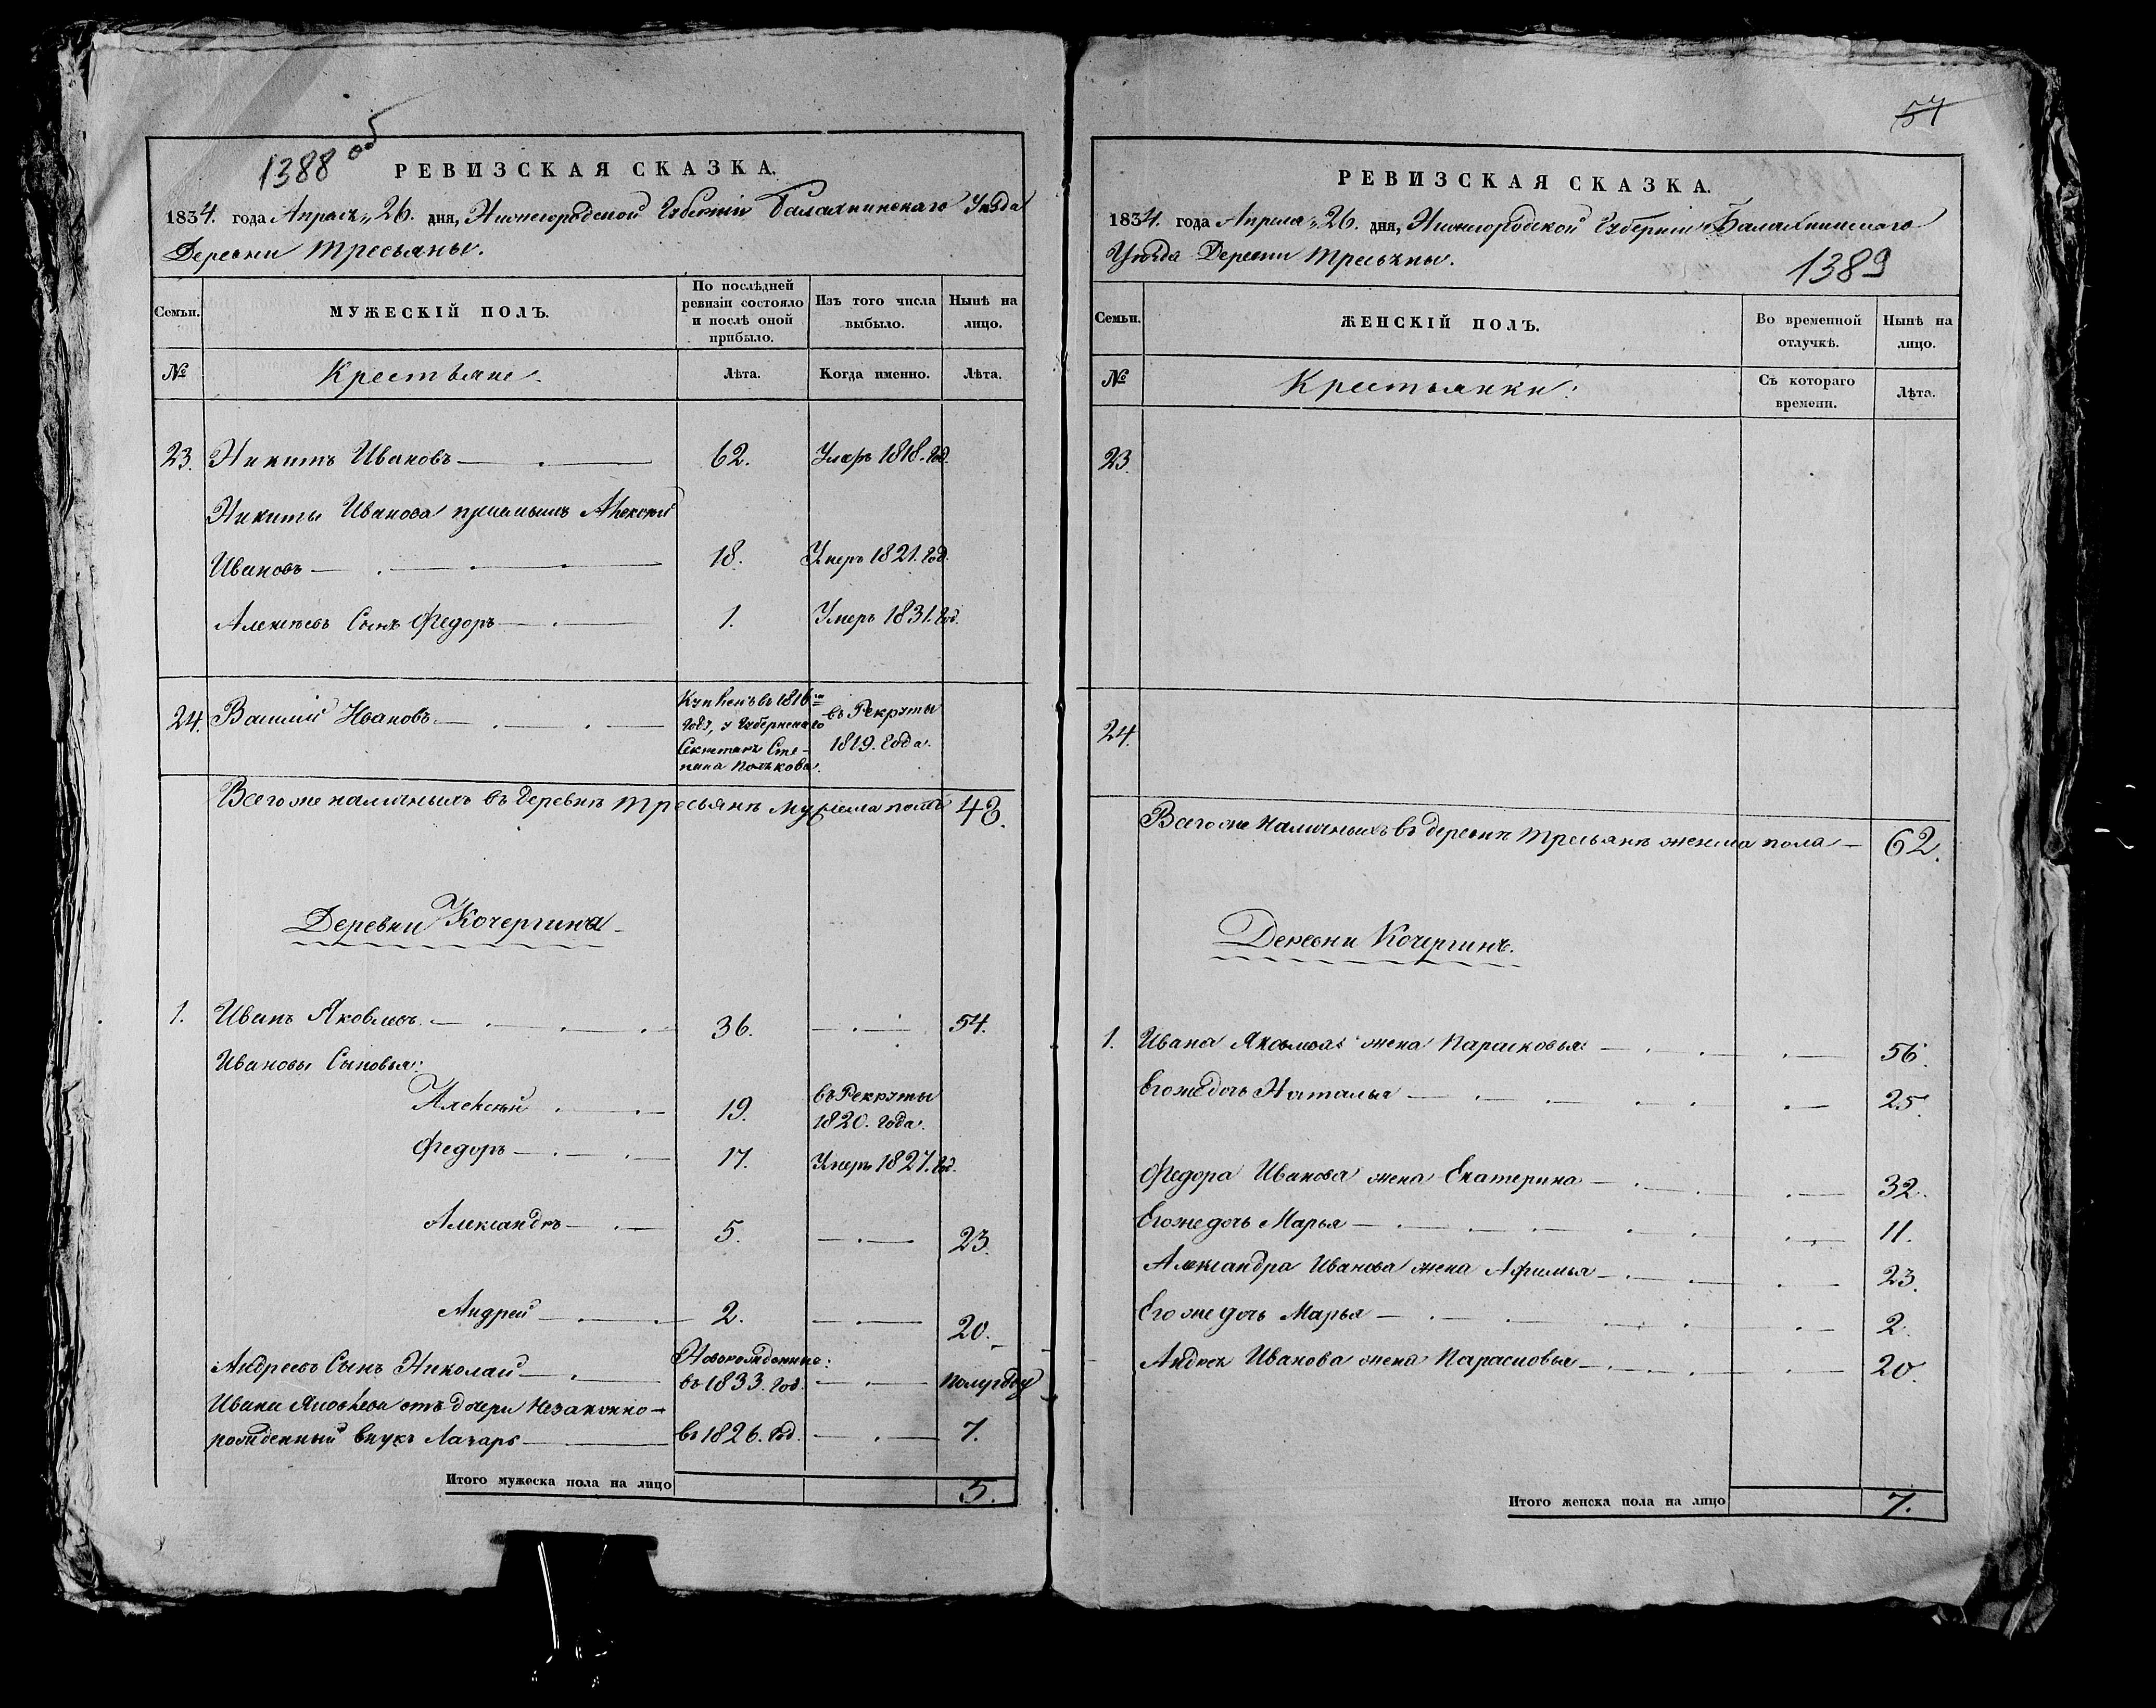 1388 об
РЕВИЗСКАЯ СКАЗКА.
1834. года Апреля „26. дня, Нижегородской Губернии Балахнинскаго Уезда
Деревни Тресьяны.
Семьи.
МУЖЕСКІЙ ПОЛЪ.
По послѣдней ревизіи состояло и послѣ оной прибыло.
Изъ того числа выбыло.
Нынѣ на лицо.
№
Крестьяне.
Лѣта.
Когда именно.
Лѣта.
23. Никита Ивановъ 62. Умеръ 1818. год.
Никиты Иванова приемышъ Алексей
Ивановъ 18. Умеръ 1821. год.
Алексеевъ Сынъ Федоръ 1. Умеръ 1831. год.
24. Василий Ивановъ
Купленъ въ 1816м
году, у Губернскаго
Секретаря Сте-
пана
въ Рекруты
1819. года.
Всего же наличныхъ въ деревне Тресьяне мужеска пола 43.
Деревни Кочергина
1. Иванъ Яковлевъ 36. 54.
Ивановы Сыновья:
Алексей 19. въ Рекруты
1820. года.
Федоръ 17. Умеръ 1827. год.
Александръ 5. 23.
Андрей 2. 20.
Андреевъ Сынъ Николай Новорожденные:
въ 1833. год. полугоду
Ивана Яковлева отъ дочери Незаконно-
рожденный внукъ Лазарь въ 1826. год. 7.
Итого мужеска пола на лицо 5.
54
РЕВИЗСКАЯ СКАЗКА.
1834. года Апреля „26. дня, Нижегородской Губернии Балахнинскаго
Уезда Деревни Тресьяны.
1389
Семьи.
ЖЕНСКІЙ ПОЛЪ.
Во временной отлучкѣ.
Нынѣ на лицо.
№
Крестьянки:
Съ котораго времени.
Лѣта.
23.
24.
Всего же наличныхъ въ деревне Тресьяне женска пола 62.
Деревни Кочергина.
1. Ивана Яковлева жена Парасковья: 56.
Его же дочь Наталья 25.
Федора Иванова жена Екатерина 32.
Его же дочь Марья 11.
Александра Иванова жена Афимья 23.
Его же дочь Марья 2.
Андрея Иванова жена Парасковья 20.
Итого женска пола на лицо 7.